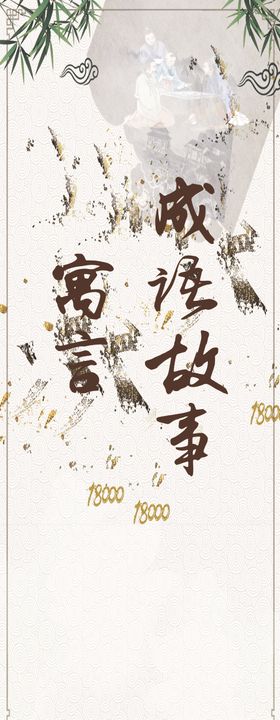 成语故事
寓言
18000
18000
18000